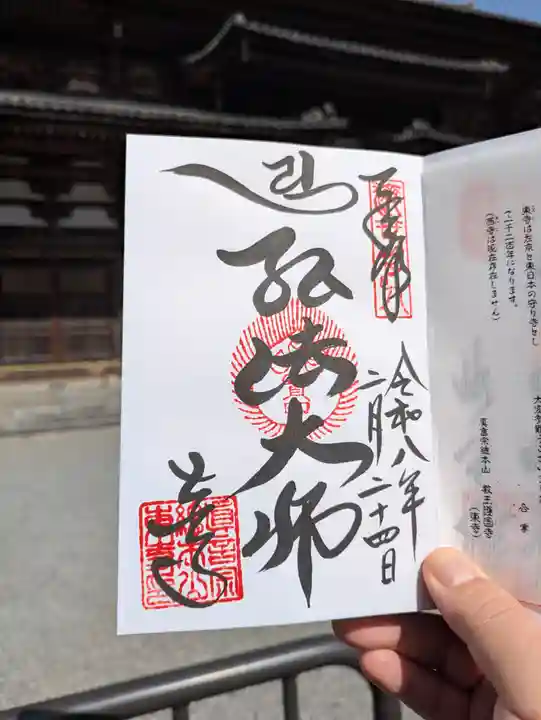 奉拝
令和八年
二月二十四日
弘法大師
東寺
東寺は左京と東日本の守り寺とし
て一千二百年になります。
(西寺は現在存在しません)
真言宗総本山 教王護国寺
(東寺)
合掌